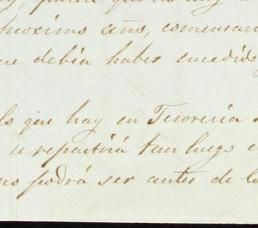 proximo año, comenzan
ue debia haber sucedido
lo que hay en Tesoreria
a repartirá tan luego
no podrá ser antes de lo